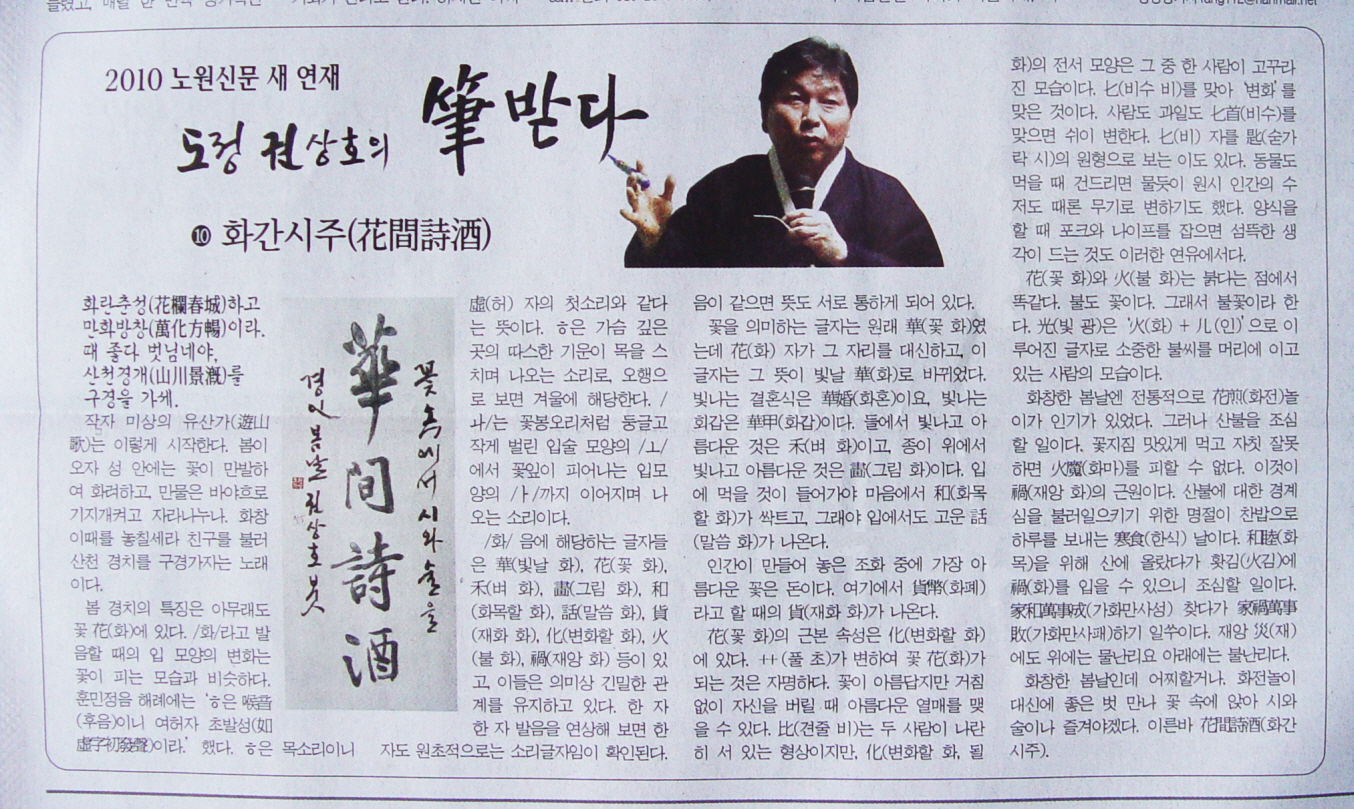 2010 노원신문 새 연재
도정 권상호의 筆받다
❿ 화간시주(花間詩酒)
화란춘성(花欄春城)하고
만화방창(萬化方暢)이라.
때 좋다 벗님네야,
산천경개(山川景漑)를
구경을 가세.
작자 미상의 유산가(遊山
歌)는 이렇게 시작한다. 봄이
오자 성 안에는 꽃이 만발하
여 화려하고, 만물은 바야흐로
기지개켜고 자라나누나. 화창
이때를 놓칠세라 친구를 불러
산천 경치를 구경가자는 노래
이다.
봄 경치의 특징은 아무래도
꽃 花(화)에 있다. /화/라고 발
음할 때의 입 모양의 변화는
꽃이 피는 모습과 비슷하다.
훈민정음 해례에는 ‘ㅎ은 喉音
(후음)이니 여허자 초발성(如
虛字初發聲)이라.’ 했다. ㅎ은 목소리이니
華間詩酒
꽃 속에서 시와 술을
경인 봄날 권상호 붓
虛(허) 자의 첫소리와 같다
는 뜻이다. ㅎ은 가슴 깊은
곳의 따스한 기운이 목을 스
치며 나오는 소리로, 오행으
로 보면 겨울에 해당한다. /
ㅘ/는 꽃봉오리처럼 둥글고
작게 벌린 입술 모양의 /ㅗ/
에서 꽃잎이 피어나는 입모
양의 /ㅏ/까지 이어지며 나
오는 소리이다.
/화/ 음에 해당하는 글자들
은 華(빛날 화), 花(꽃 화),
禾(벼 화), 畵(그림 화), 和
(화목할 화), 話(말씀 화), 貨
(재화 화), 化(변화할 화), 火
(불 화), 禍(재앙 화) 등이 있
고, 이들은 의미상 긴밀한 관
계를 유지하고 있다. 한 자
한 자 발음을 연상해 보면 한
자도 원초적으로는 소리글자임이 확인된다.
음이 같으면 뜻도 서로 통하게 되어 있다.
꽃을 의미하는 글자는 원래 華(꽃 화)였
는데 花(화) 자가 그 자리를 대신하고, 이
글자는 그 뜻이 빛날 華(화)로 바뀌었다.
빛나는 결혼식은 華婚(화혼)이요, 빛나는
회갑은 華甲(화갑)이다. 들에서 빛나고 아
름다운 것은 禾(벼 화)이고, 종이 위에서
빛나고 아름다운 것은 畵(그림 화)이다. 입
에 먹을 것이 들어가야 마음에서 和(화목
할 화)가 싹트고, 그래야 입에서도 고운 話
(말씀 화)가 나온다.
인간이 만들어 놓은 조화 중에 가장 아
름다운 꽃은 돈이다. 여기에서 貨幣(화폐)
라고 할 때의 貨(재화 화)가 나온다.
花(꽃 화)의 근본 속성은 化(변화할 화)
에 있다. ++(풀 초)가 변하여 꽃 花(화)가
되는 것은 자명하다. 꽃이 아름답지만 거침
없이 자신을 버릴 때 아름다운 열매를 맺
을 수 있다. 比(견줄 비)는 두 사람이 나란
히 서 있는 형상이지만, 化(변화할 화, 될
화)의 전서 모양은 그 중 한 사람이 고꾸라
진 모습이다. 匕(비수 비)를 맞아 ‘변화’를
맞은 것이다. 사람도 과일도 匕首(비수)를
맞으면 쉬이 변한다. 匕(비) 자를 匙(숟가
락 시)의 원형으로 보는 이도 있다. 동물도
먹을 때 건드리면 물듯이 원시 인간의 수
저도 때론 무기로 변하기도 했다. 양식을
할 때 포크와 나이프를 잡으면 섬뜩한 생
각이 드는 것도 이러한 연유에서다.
花(꽃 화)와 火(불 화)는 붉다는 점에서
똑같다. 불도 꽃이다. 그래서 불꽃이라 한
다. 光(빛 광)은 ‘火(화) + 儿(인)’으로 이
루어진 글자로 소중한 불씨를 머리에 이고
있는 사람의 모습이다.
화창한 봄날엔 전통적으로 花煎(화전)놀
이가 인기가 있었다. 그러나 산불을 조심
할 일이다. 꽃지짐 맛있게 먹고 자칫 잘못
하면 火魔(화마)를 피할 수 없다. 이것이
禍(재앙 화)의 근원이다. 산불에 대한 경계
심을 불러일으키기 위한 명절이 찬밥으로
하루를 보내는 寒食(한식) 날이다. 和睦(화
목)을 위해 산에 올랐다가 홧김(火김)에
禍(화)를 입을 수 있으니 조심할 일이다.
家和萬事成(가화만사성) 찾다가 家禍萬事
敗(가화만사패)하기 일쑤이다. 재앙 災(재)
에도 위에는 물난리요 아래에는 불난리다.
화창한 봄날인데 어찌할거나. 화전놀이
대신에 좋은 벗 만나 꽃 속에 앉아 시와
술이나 즐겨야겠다. 이른바 花間詩酒(화간
시주).